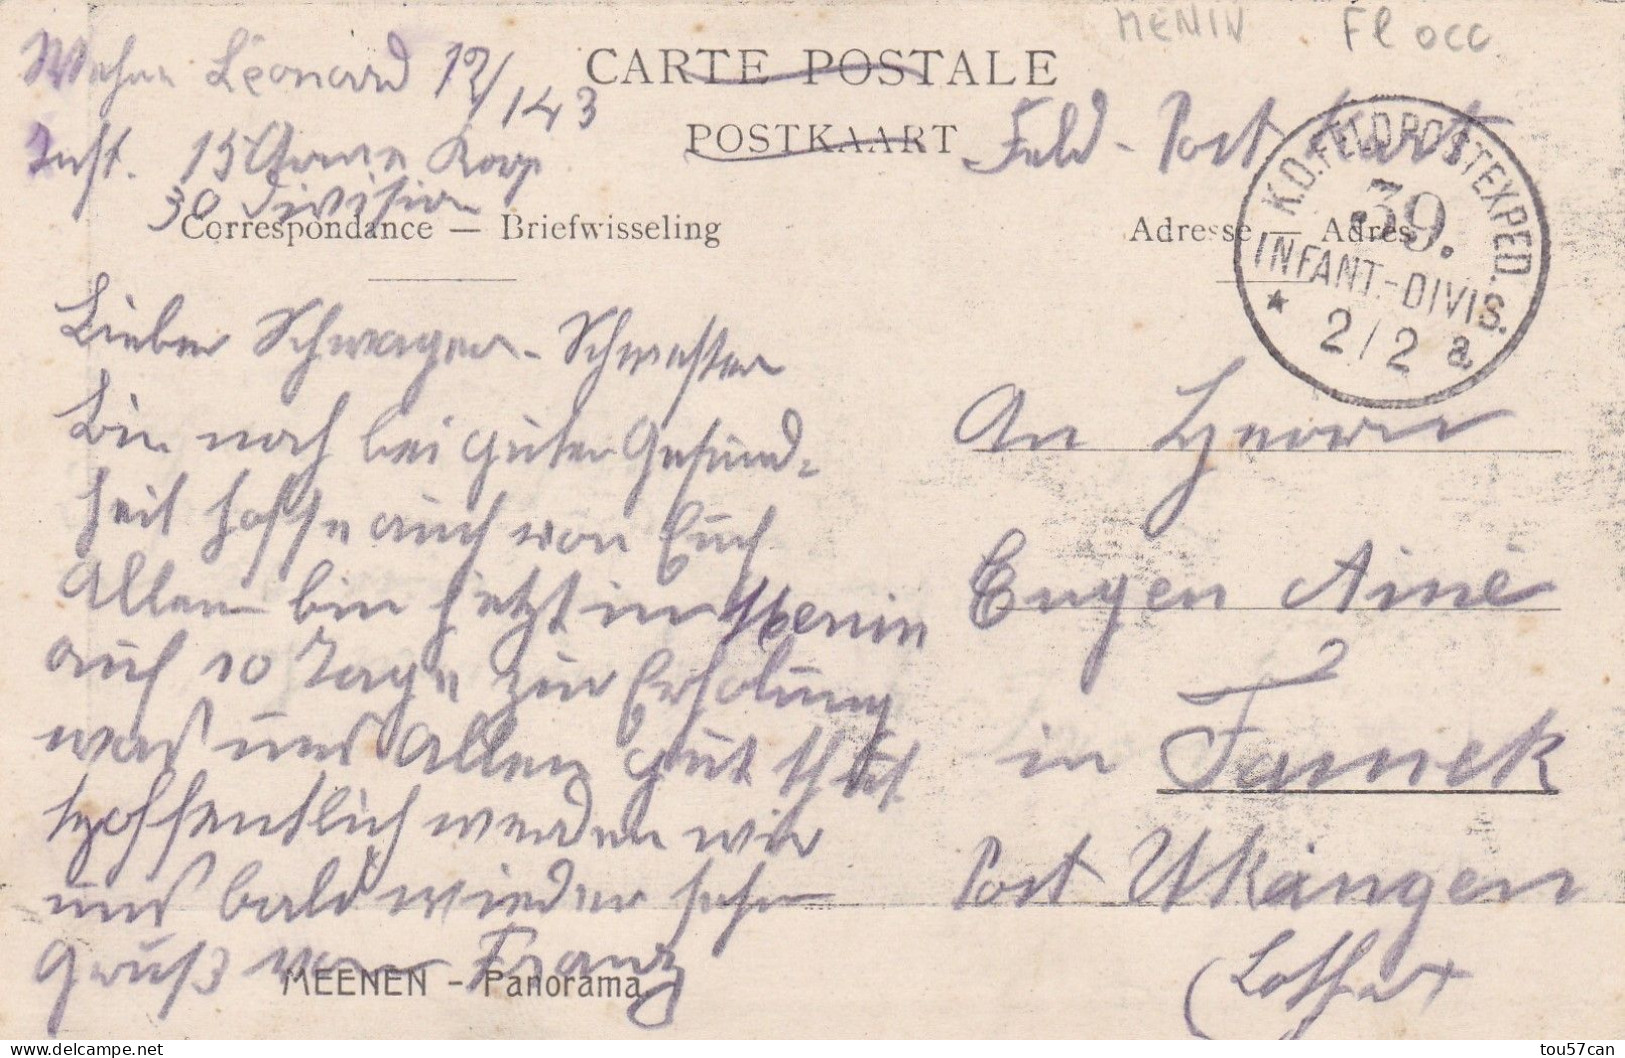 MENIN Fl occ
CARTE POSTALE
POSTKAART
Léonard 12/143
Inft. 15 Armee Korp
30 Division
Feld-Post Karte
K.D.FELDPOSTEXPED.
39.
INFANT.-DIVIS.
* 2/2 a.
Correspondance — Briefwisseling
Adresse — Adres
Lieber Schwager - Schwester
Bin noch bei guter Gesund-
heit hoffe auch von Euch
Allen bin jetzt in Menin
auf 10 Tage zur Erholung
was uns Allen gut thut.
Hoffentlich werden wir
uns bald wieder sehen
Gruß von Franz
An Herrn
Eugen Ainé
in Fameck
Post Ukängen
(Lothr
MEENEN - Panorama.
tou57can